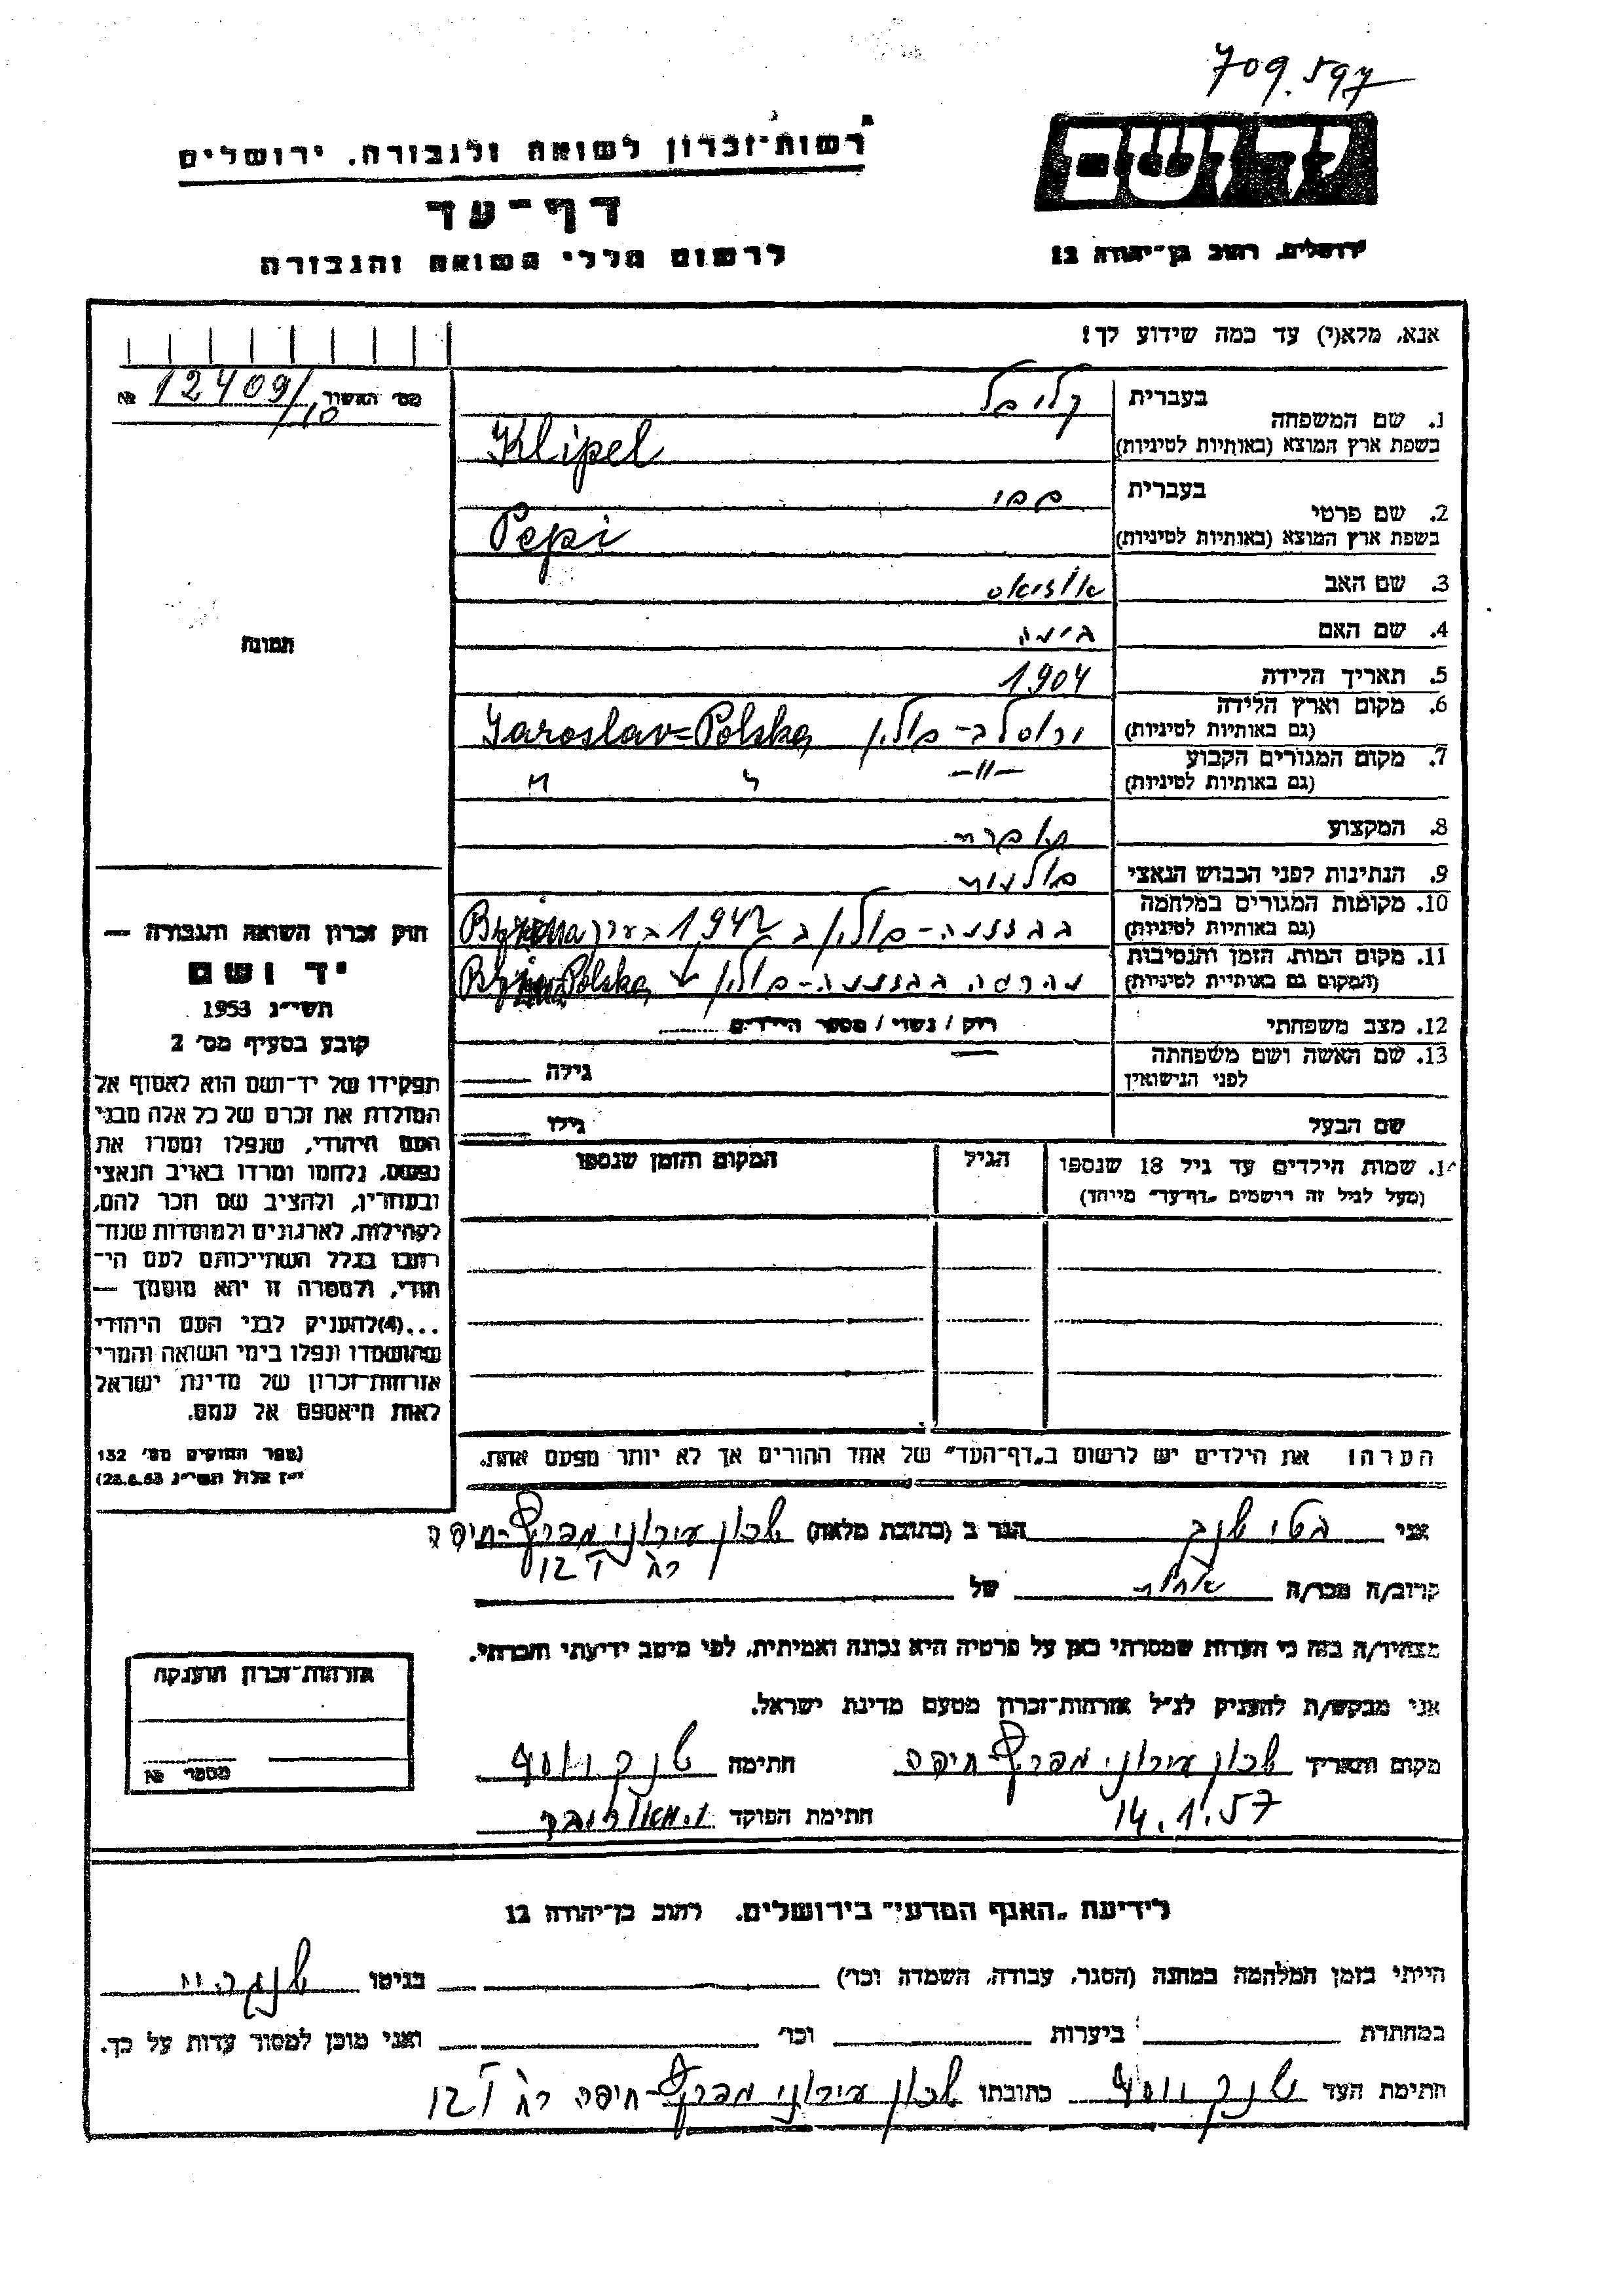 709.597
יד ושם
רשות־זכרון לשואה ולגבורה, ירושלים
דף־עד
לרשום חללי השואה והגבורה
ירושלים, רחוב בן־יהודה 12
אנא, מלא(י) עד כמה שידוע לך!
מס׳ האשור 12409/10 №
1. שם המשפחה בעברית
בשפת ארץ המוצא (באותיות לטיניות) Klipel
2. שם פרטי בעברית פפי
בשפת ארץ המוצא (באותיות לטיניות) Pepi
3. שם האב
4. שם האם
5. תאריך הלידה 1904
6. מקום וארץ הלידה ירוסלב - פולין Jaroslav=Polska
(גם באותיות לטיניות)
7. מקום המגורים הקבוע -"-
(גם באותיות לטיניות)
8. המקצוע תופרת
9. הנתינות לפני הכבוש הנאצי פולנית
10. מקומות המגורים במלחמה
(גם באותיות לטיניות) פולין 1942 בערך
11. מקום המות, הזמן והנסיבות
(המקום גם באותיות לטיניות) נהרגה פולין Polska
12. מצב משפחתי רוק / נשוי / מספר הילדים
13. שם האשה ושם משפחתה גילה
לפני הנישואין
שם הבעל גילו
תמונה
חוק זכרון השואה והגבורה —
יד ושם
תשי״ג 1953
קובע בסעיף מס׳ 2
תפקידו של יד־ושם הוא לאסוף אל
המולדת את זכרם של כל אלה מבני
העם היהודי, שנפלו ומסרו את
נפשם, נלחמו ומרדו באויב הנאצי
ובעוזריו, ולהציב שם וזכר להם,
לקהילות, לארגונים ולמוסדות שנח־
רבו בגלל השתייכותם לעם הי־
הודי, ולמטרה זו יהא מוסמך —
...(4)להעניק לבני העם היהודי
שהושמדו ונפלו בימי השואה והמרי
אזרחות־זכרון של מדינת ישראל
לאות היאספם אל עמם.
(ספר החוקים מס׳ 132
י״ז אלול תשי״ג 28.8.53)
14. שמות הילדים עד גיל 18 שנספו הגיל המקום והזמן שנספו
(מעל לגיל זה רושמים „דף־עד״ מיוחד)
הערה: את הילדים יש לרשום ב„דף־העד״ של אחד ההורים אך לא יותר מפעם אחת.
אני הגר ב (כתובת מלאה) שכון עירוני מפרץ - חיפה
רח׳ 12
קרוב/ה מכר/ה של
מצהיר/ה בזה כי העדות שמסרתי כאן על פרטיה היא נכונה ואמיתית, לפי מיטב ידיעתי והכרתי.
אני מבקש/ת להעניק לנ״ל אזרחות־זכרון מטעם מדינת ישראל.
מקום ותאריך שכון עירוני מפרץ - חיפה חתימה
14.1.57 חתימת הפוקד
אזרחות־זכרון הוענקה
מספר №
לידיעת „האגף המדעי״ בירושלים, רחוב בן־יהודה 12
הייתי בזמן המלחמה במחנה (הסגר, עבודה, השמדה וכו׳) בגיטו
במחתרת ביערות וכו׳ ואני מוכן למסור עדות על כך.
חתימת העד כתובתו שכון עירוני מפרץ - חיפה רח׳ 12